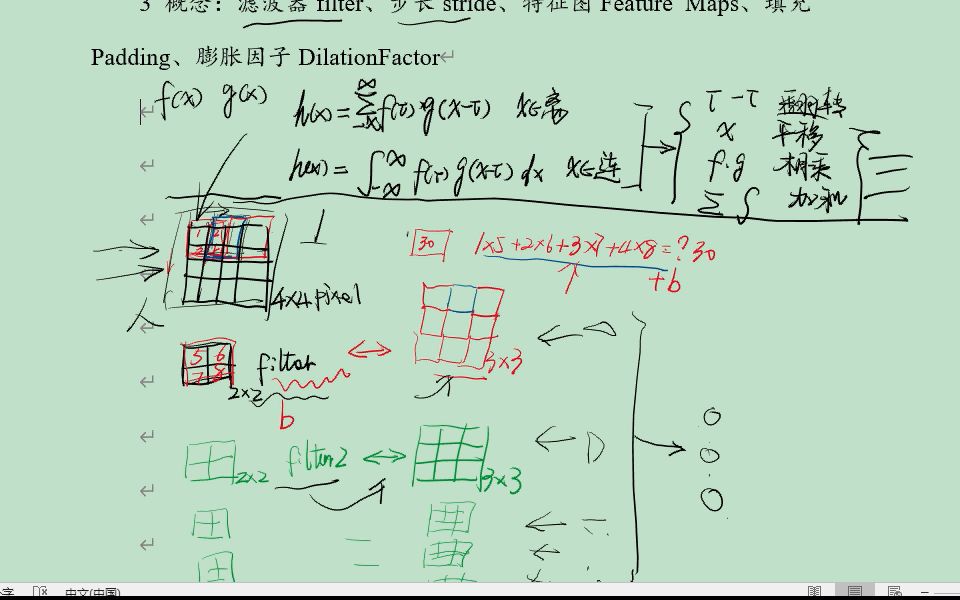 3 概念：滤波器 filter、步长 stride、特征图 Feature Maps、填充
Padding、膨胀因子 DilationFactor
f(x) g(x)
h(x) = ∑ f(τ) g(x-τ) x∈离
h(x) = ∫ f(τ) g(x-τ) dx x∈连
τ -τ 翻转
x 平移
f.g 相乘
∑ ∫ 加和
1 2
4×4 pixel
30
1×5+2×6+3×7+4×8=?30
+b
5 6
7 8
2×2
filter
3×3
b
2×2
filter2
3×3
中文(中国)